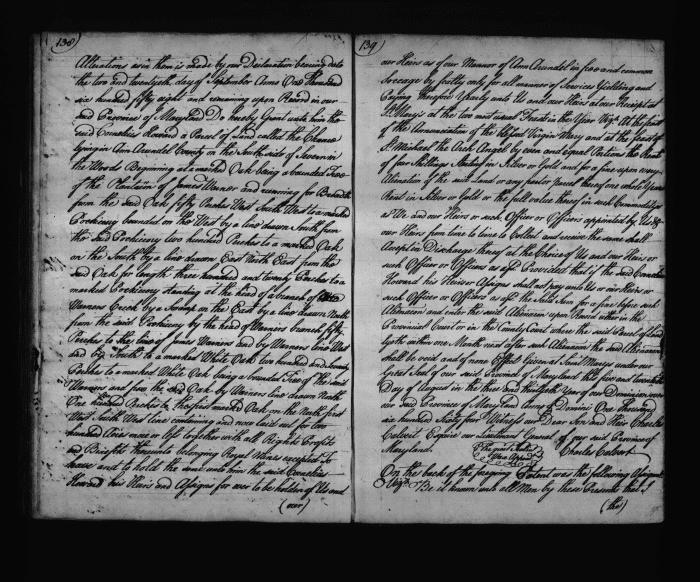 138
Alterations as in them is made by our Declaration bearing date
the two and twentyeth day of September Anno One thousand
six hundred fifty eight and remaining upon Record in our
said Province of Maryland Do hereby Grant unto him the
said Cornelius Howard a Parcel of Land called the Chance
lying in Ann Arundel County on the South side of Severn in
the Woods Beginning at a marked Oak being a bounded Tree
of the Plantation of James Warner and running for Breadth
from the said Oak fifty Perches West South West to a marked
Pockiccory bounded on the West by a line drawn South from
the said Pockiccory two hundred Perches to a marked Oak
on the South by a line drawn East North East from the
said Oak for length three hundred and twenty Perches to a
marked Pockiccory standing at the head of a branch of
Warners Creek by a Swamp on the East by a line drawn North
from the said Pockiccory by the head of Warners branch fifty
Perches to the line of James Warners and by Warners line West
and by South to a marked White Oak two hundred and seventy
Perches to a marked White Oak being a bounded Tree of the said
Warners and from the said Oak by Warners line drawn North
One hundred Perches to the first marked Oak on the North first
West South West line containing and now laid out for two
hundred Acres more or less together with all Rights Profits
and Benefits thereunto belonging Royal Mines excepted To
have and to hold the same unto him the said Cornelius
Howard his Heirs and Assigns for ever to be holden of Us and
(our)
139
our Heirs as of our Mannor of Ann Arundel in free and common
Soccage by fealty only for all manner of Services Yielding and
Paying therefore Yearly unto Us and our Heirs at our Receipt at
St. Marys at the two most usual Feasts in the Year Vizt. At the feast
of the Annunciation of the blessed Virgin Mary and at the feast of
St. Michael the Arch Angel by even and equal Portions the Rent
of four Shillings Sterling in Silver or Gold and for a fine upon every
Alienation of the said Land or any part or Parcel thereof one whole Years
Rent in Silver or Gold or the full value thereof in such Commodities
as We and our Heirs or such Officer or Officers appointed by Us &
our Heirs from time to time to Collect and receive the same shall
Accept in Discharge thereof at the Choice of Us and our Heirs or
such Officer or Officers as afd. Provided that if the said Cornelius
Howard his Heirs or Assigns shall not pay unto Us or our Heirs or
such Officer or Officers as afd. the said Sum for a fine before such
Alienation and enter the said Alienation upon Record either in the
Provincial Court or in the County Court where the said Parcel of Land
lyeth within One Month next after such Alienation the said Alienation
shall be void and of none Effect Given at Saint Marys under our
Great Seal of our said Province of Maryland this
Day of August in the three and thirtyeth Year of our Dominion over
our said Province of Maryland Anno Domini One thousand
six hundred Sixty four Witness our Dear Son and Heir Charles
Calvert Esquire our Lieutenant General of our said Province of
Maryland. Charles Calvert
On the back of the foregoing Patent was the following Assignmt.
Vizt. Be it known unto all Men by these Presents that I
(the)